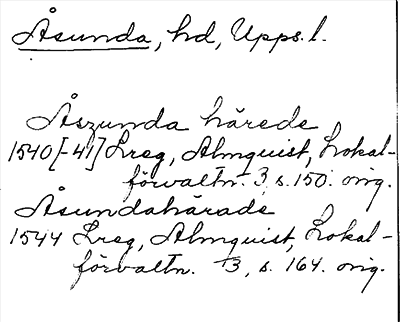 Åsunda, hd, Upps. l.
Åszunda härede
1540[-41] Lreg, Almquist, Lokal-
förvaltn. 3, s. 150. orig.
Åsundahärade
1544 Lreg, Almquist, Lokal-
förvaltn. 3, s. 164. orig.